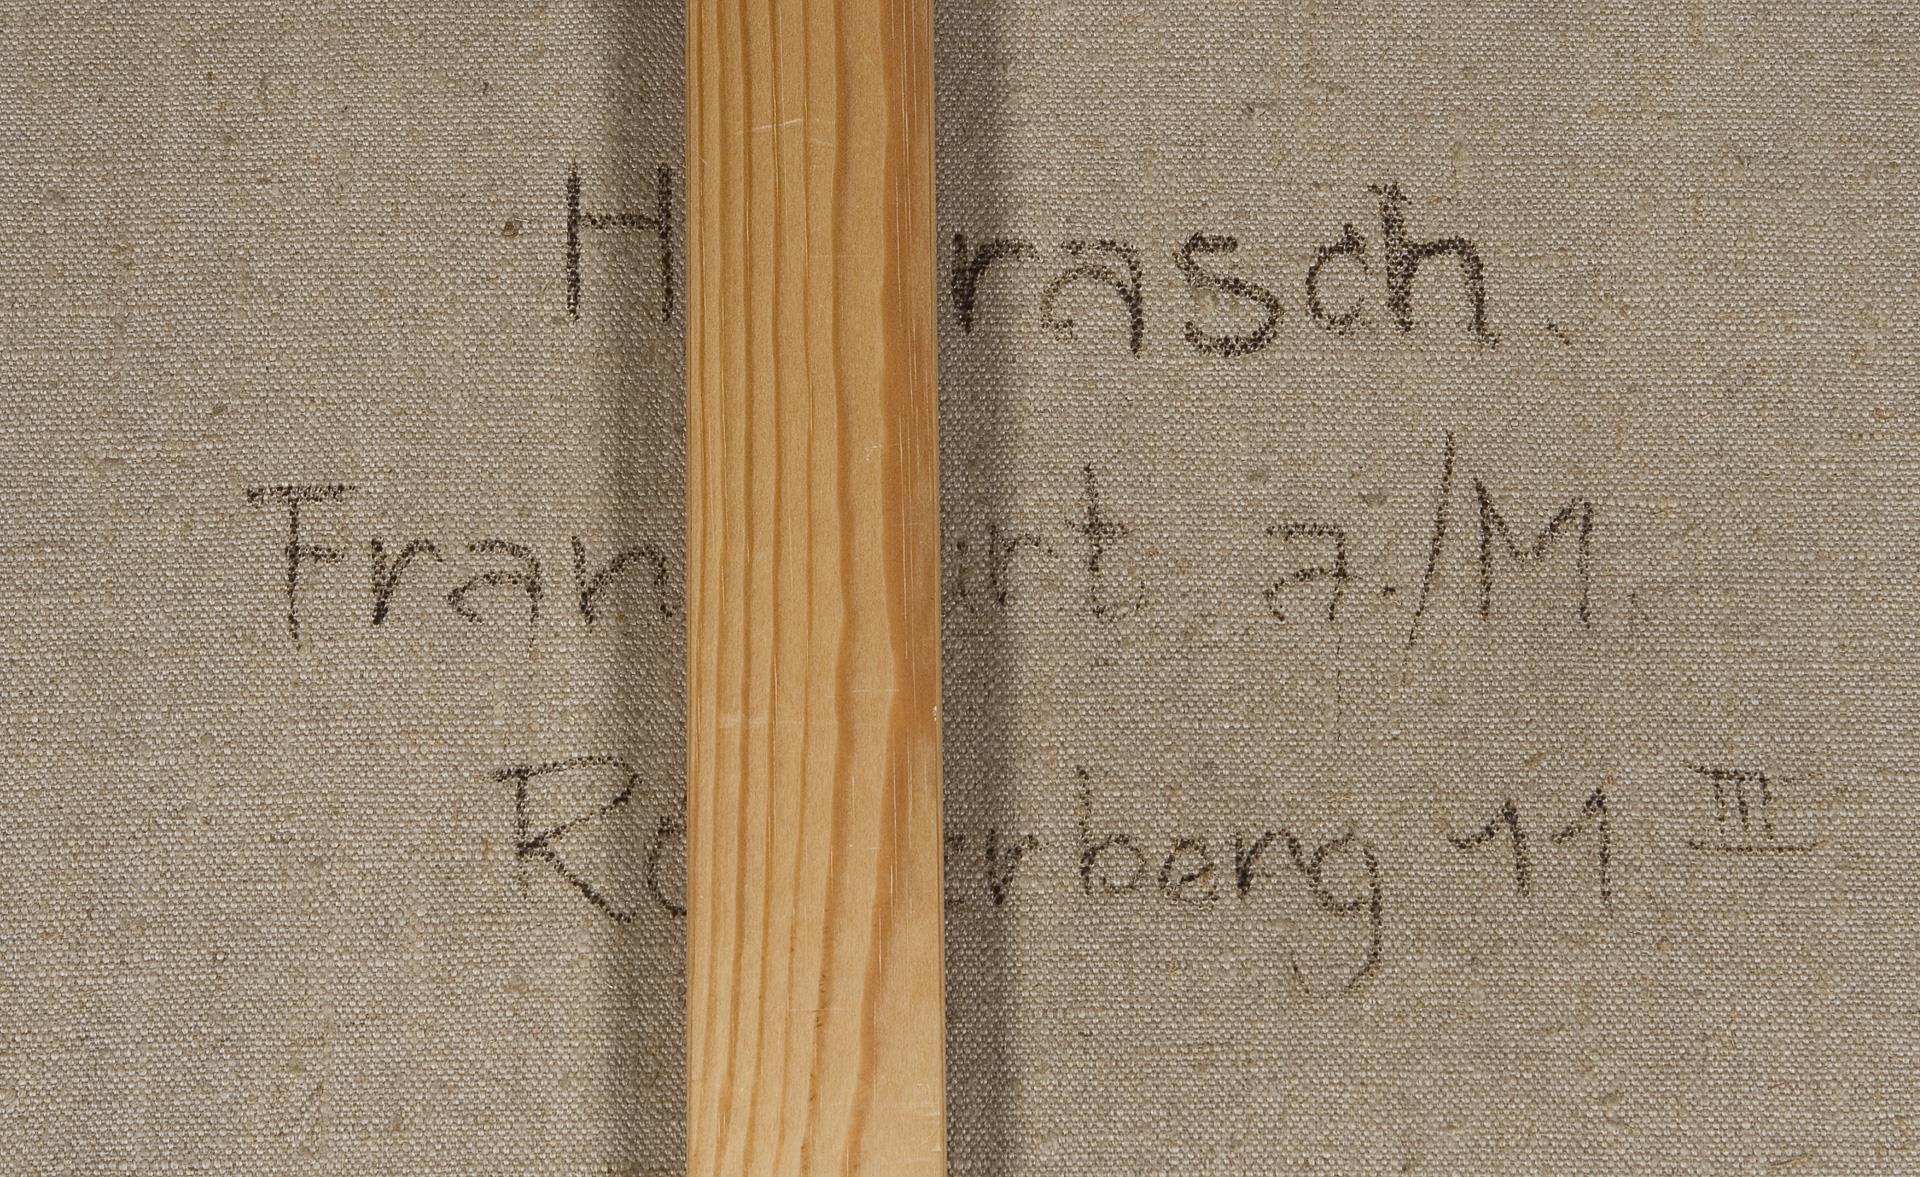 H rasch.
Fran urt a./M.
Ro erberg 11 III